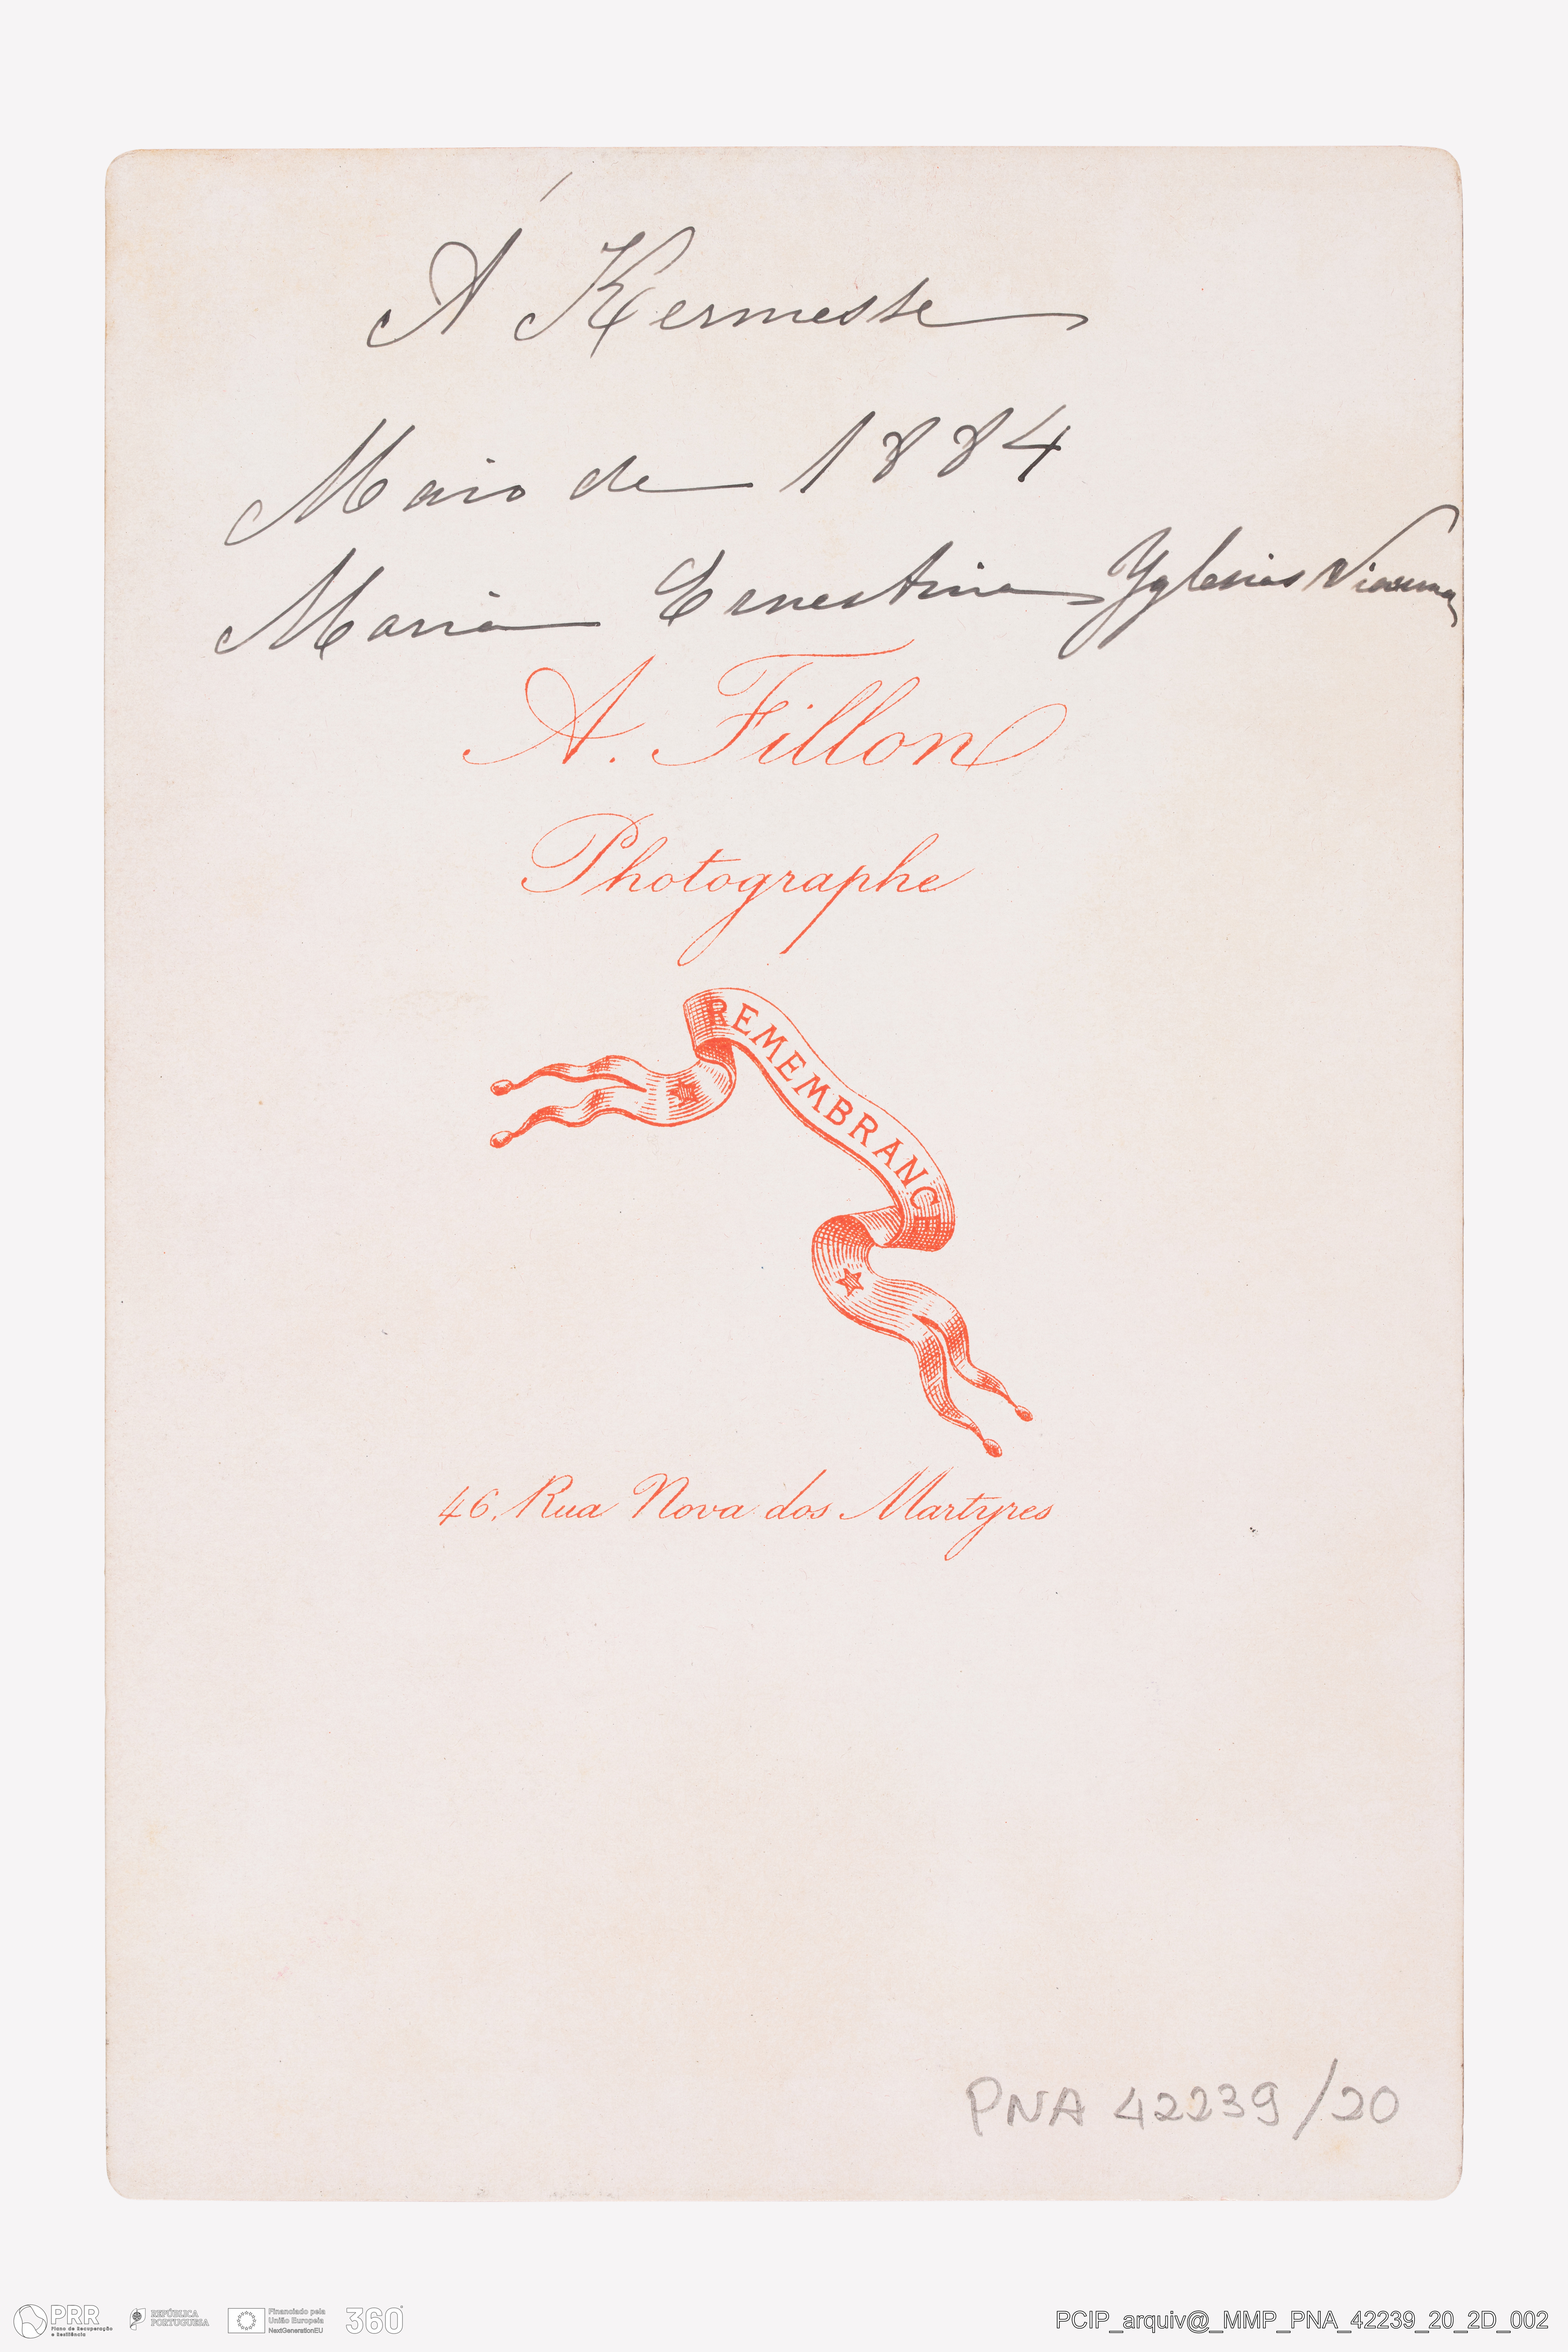 Á Kermesse
Maio de 1884
Maria Ernestina Yglesias Vianna
A. Fillon
Photographe
REMEMBRANCE
46, Rua Nova dos Martyres
PNA 42239/20
PRR
Plano de Recuperação
e Resiliência
REPÚBLICA
PORTUGUESA
Financiado pela
União Europeia
NextGenerationEU
360°
PCIP_arquiv@_MMP_PNA_42239_20_2D_002